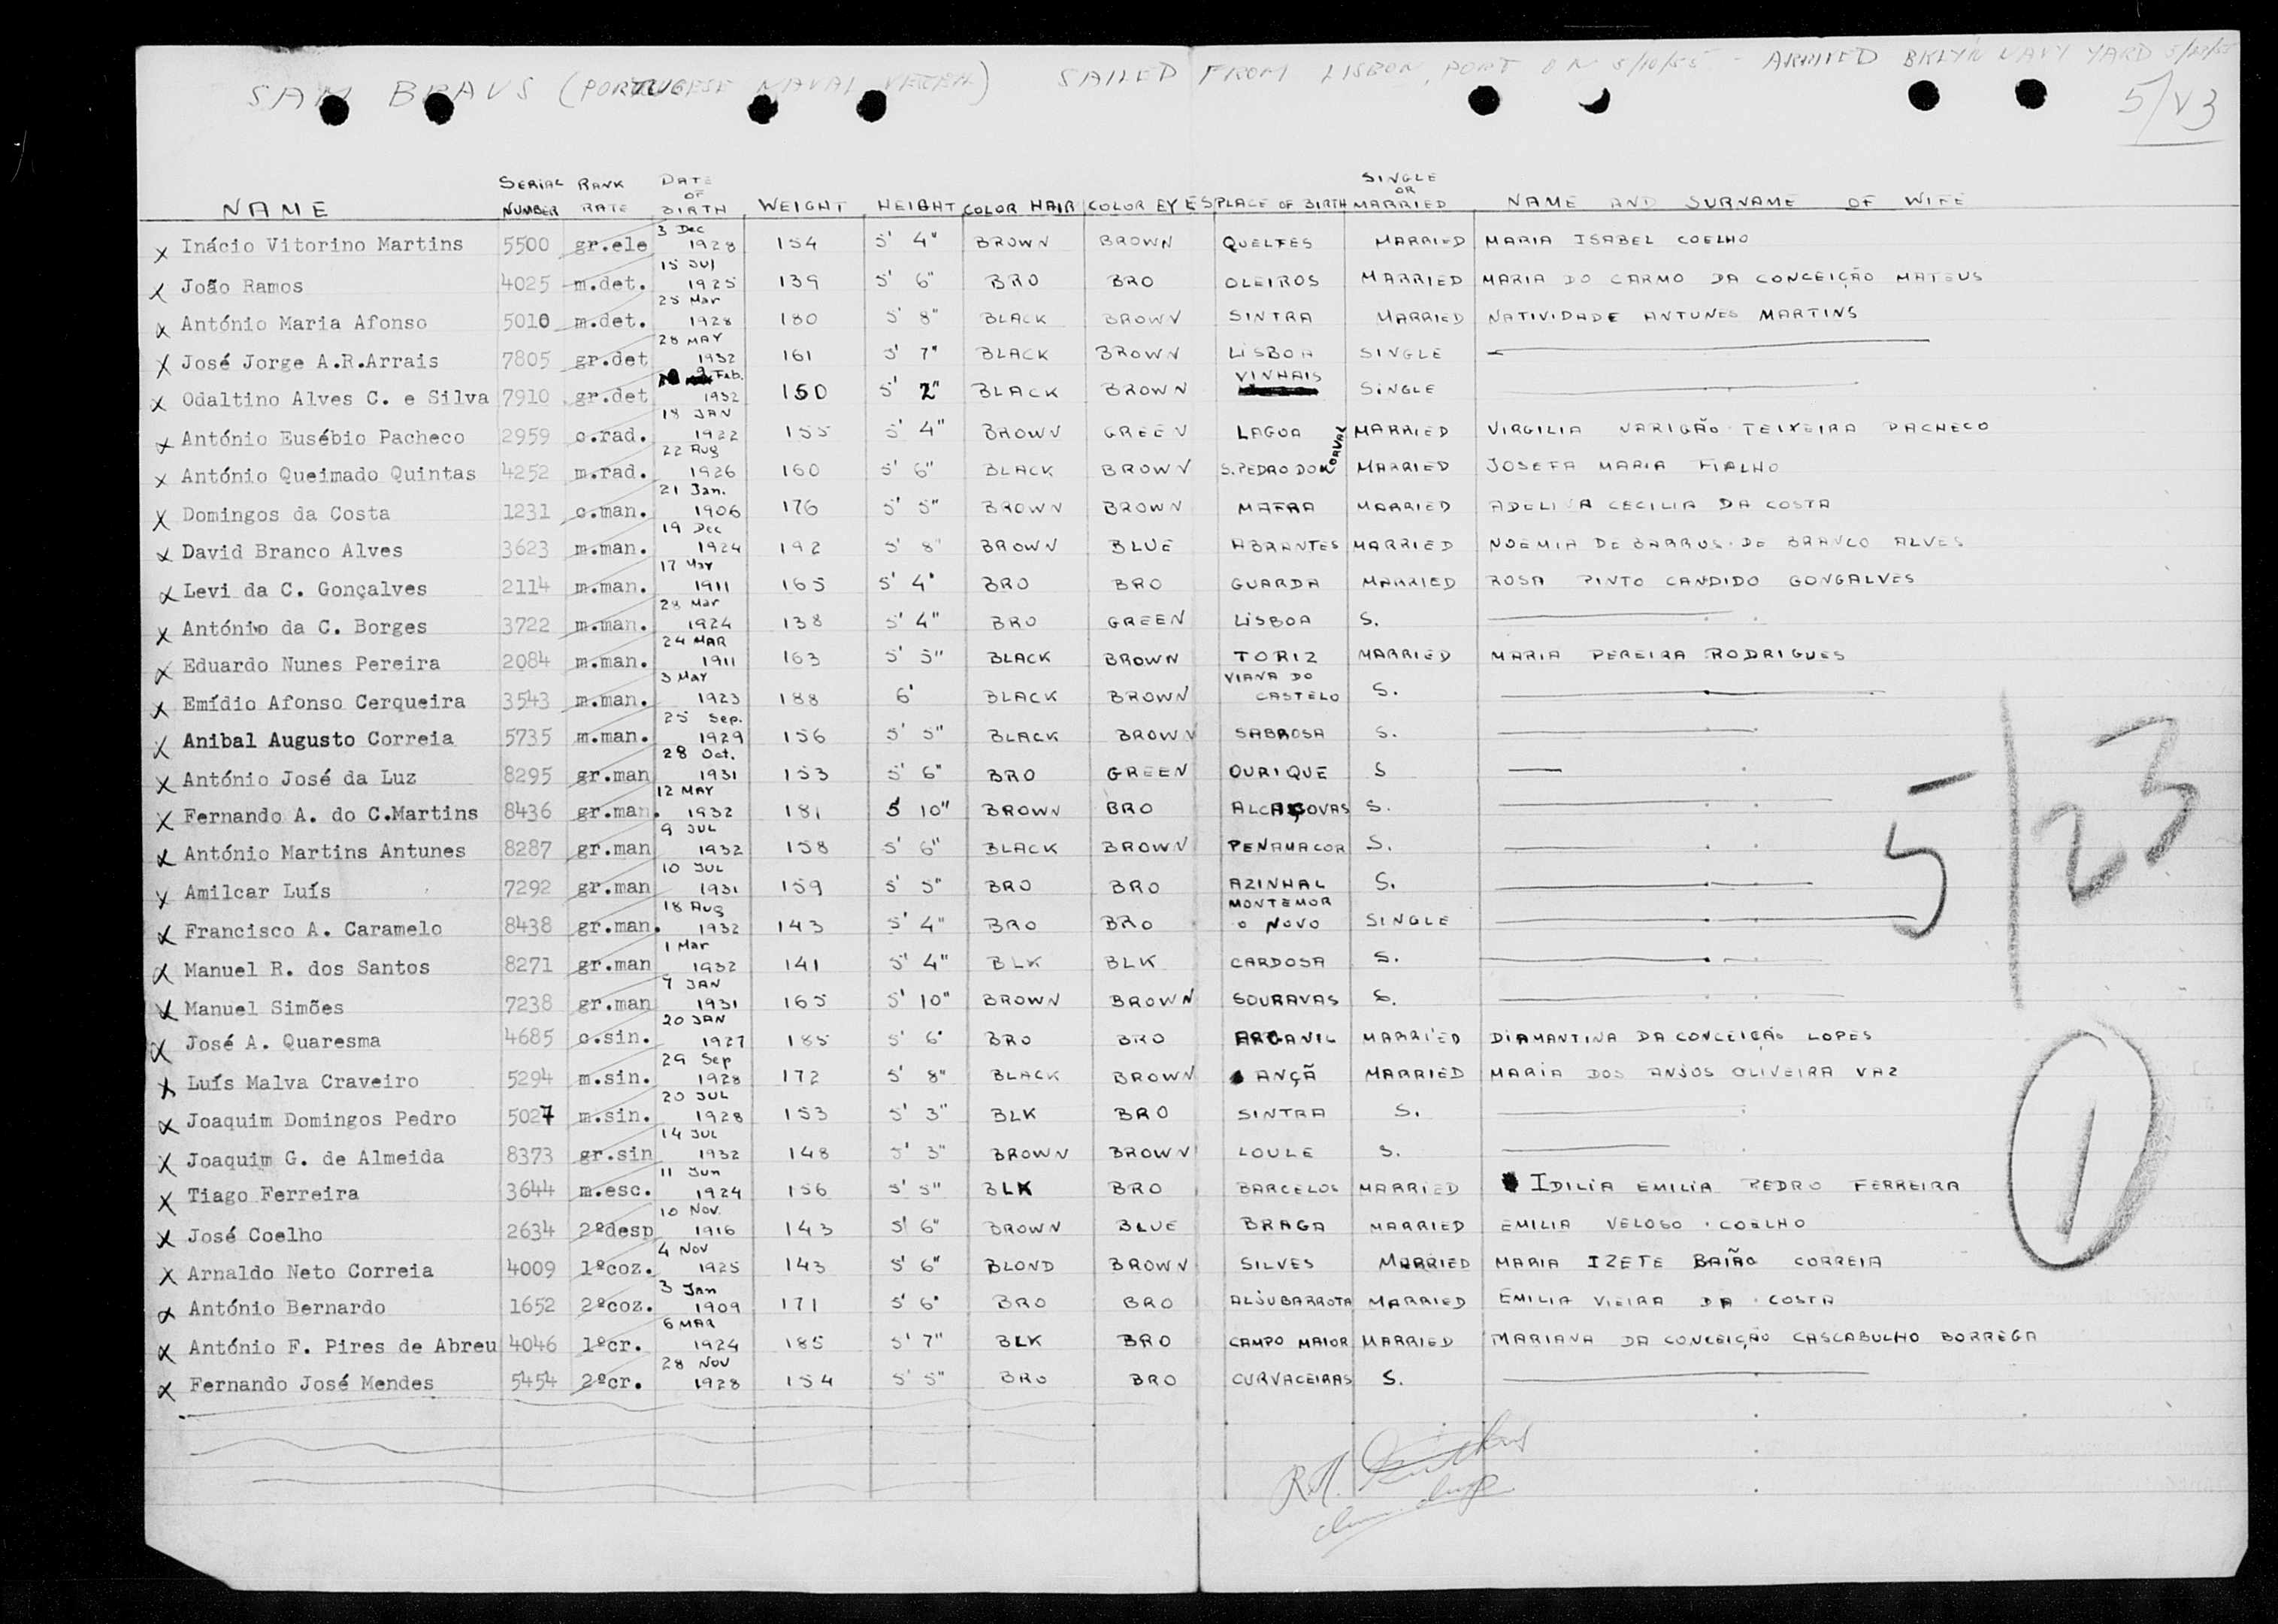 SAM BRAVS (PORTUGESE NAVAL VESEL) SAILED FROM LISBON, PORT ON 5/10/55 - ARRIVED BKLYN NAVY YARD 5/23/55
5/23
NAME SERIAL NUMBER RANK RATE DATE OF BIRTH WEIGHT HEIGHT COLOR HAIR COLOR EYES PLACE OF BIRTH SINGLE OR MARRIED NAME AND SURNAME OF WIFE
x Inácio Vitorino Martins 5500 gr.ele 3 Dec 1928 154 5' 4" BROWN BROWN QUELFES MARRIED MARIA ISABEL COELHO
x João Ramos 4025 m.det. 15 Jul 1925 139 5' 6" BRO BRO OLEIROS MARRIED MARIA DO CARMO DA CONCEIÇÃO MATEUS
x António Maria Afonso 5010 m.det. 25 Mar 1928 180 5' 8" BLACK BROWN SINTRA MARRIED NATIVIDADE ANTUNES MARTINS
x José Jorge A.R.Arrais 7805 gr.det 28 MAY 1932 161 5' 7" BLACK BROWN LISBOA SINGLE
x Odaltino Alves C. e Silva 7910 gr.det 9 Feb. 1932 150 5' 2" BLACK BROWN VINHAIS SINGLE
x António Eusébio Pacheco 2959 c.rad. 18 JAN 1922 155 5' 4" BROWN GREEN LAGOA MARRIED VIRGILIA VARIGÃO TEIXEIRA PACHECO
x António Queimado Quintas 4252 m.rad. 22 Aug 1926 160 5' 6" BLACK BROWN S.PEDRO DO CORVAL MARRIED JOSEFA MARIA FIALHO
x Domingos da Costa 1231 c.man. 21 Jan. 1906 176 5' 5" BROWN BROWN MAFRA MARRIED ADELINA CECILIA DA COSTA
x David Branco Alves 3623 m.man. 19 Dec 1924 192 5' 8" BROWN BLUE ABRANTES MARRIED NOEMIA DE BARROS DE BRANCO ALVES
x Levi da C. Gonçalves 2114 m.man. 17 May 1911 165 5' 4" BRO BRO GUARDA MARRIED ROSA PINTO CANDIDO GONGALVES
x António da C. Borges 3722 m.man. 28 Mar 1924 138 5' 4" BRO GREEN LISBOA S.
x Eduardo Nunes Pereira 2084 m.man. 24 MAR 1911 163 5' 5" BLACK BROWN TORIZ MARRIED MARIA PEREIRA RODRIGUES
x Emídio Afonso Cerqueira 3543 m.man. 3 MAY 1923 188 6' BLACK BROWN VIANA DO CASTELO S.
x Anibal Augusto Correia 5735 m.man. 25 Sep. 1929 156 5' 5" BLACK BROWN SABROSA S.
x António José da Luz 8295 gr.man 28 Oct. 1931 153 5' 6" BRO GREEN OURIQUE S
x Fernando A. do C.Martins 8436 gr.man. 12 MAY 1932 181 5 10" BROWN BRO ALCAÇOVAS S.
x António Martins Antunes 8287 gr.man 9 JUL 1932 158 5' 6" BLACK BROWN PENAMACOR S.
x Amilcar Luís 7292 gr.man 10 JUL 1931 159 5' 5" BRO BRO AZINHAL S.
x Francisco A. Caramelo 8438 gr.man. 18 Aug 1932 143 5' 4" BRO BRO MONTEMOR O NOVO SINGLE
x Manuel R. dos Santos 8271 gr.man 1 Mar 1932 141 5' 4" BLK BLK CARDOSA S.
x Manuel Simões 7238 gr.man 7 JAN 1931 165 5' 10" BROWN BROWN SOURAVAS S.
x José A. Quaresma 4685 c.sin. 20 JAN 1927 185 5' 6" BRO BRO ARGANIL MARRIED DIAMANTINA DA CONCEIÇÃO LOPES
x Luís Malva Craveiro 5294 m.sin. 29 Sep 1928 172 5' 8" BLACK BROWN ANÇÃ MARRIED MARIA DOS ANJOS OLIVEIRA VAZ
x Joaquim Domingos Pedro 5027 m.sin. 20 JUL 1928 153 5' 3" BLK BRO SINTRA S.
x Joaquim G. de Almeida 8373 gr.sin 14 JUL 1932 148 5' 3" BROWN BROWN LOULE S.
x Tiago Ferreira 3644 m.esc. 11 Jun 1924 156 5' 5" BLK BRO BARCELOS MARRIED IDILIA EMILIA PEDRO FERREIRA
x José Coelho 2634 2ºdesp 10 Nov. 1916 143 5' 6" BROWN BLUE BRAGA MARRIED EMILIA VELOSO COELHO
x Arnaldo Neto Correia 4009 1ºcoz. 4 Nov 1925 143 5' 6" BLOND BROWN SILVES MARRIED MARIA IZETE BAIÃO CORREIA
x António Bernardo 1652 2ºcoz. 3 Jan 1909 171 5' 6" BRO BRO ALJUBARROTA MARRIED EMILIA VIEIRA DA COSTA
x António F. Pires de Abreu 4046 1ºcr. 6 MAR 1924 185 5' 7" BLK BRO CAMPO MAIOR MARRIED MARIANA DA CONCEIÇÃO CASCABULHO BORREGA
x Fernando José Mendes 5454 2ºcr. 28 NOV 1928 154 5' 5" BRO BRO CURVACEIRAS S.
5/23
1
R.M.